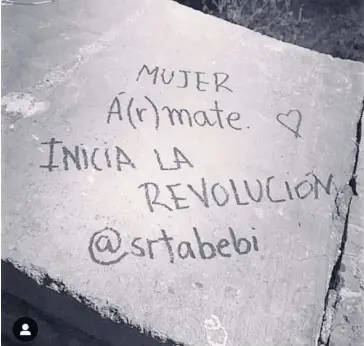 MUJER
Á(r)mate.
INICIA LA
REVOLUCIÓN
@srtabebi